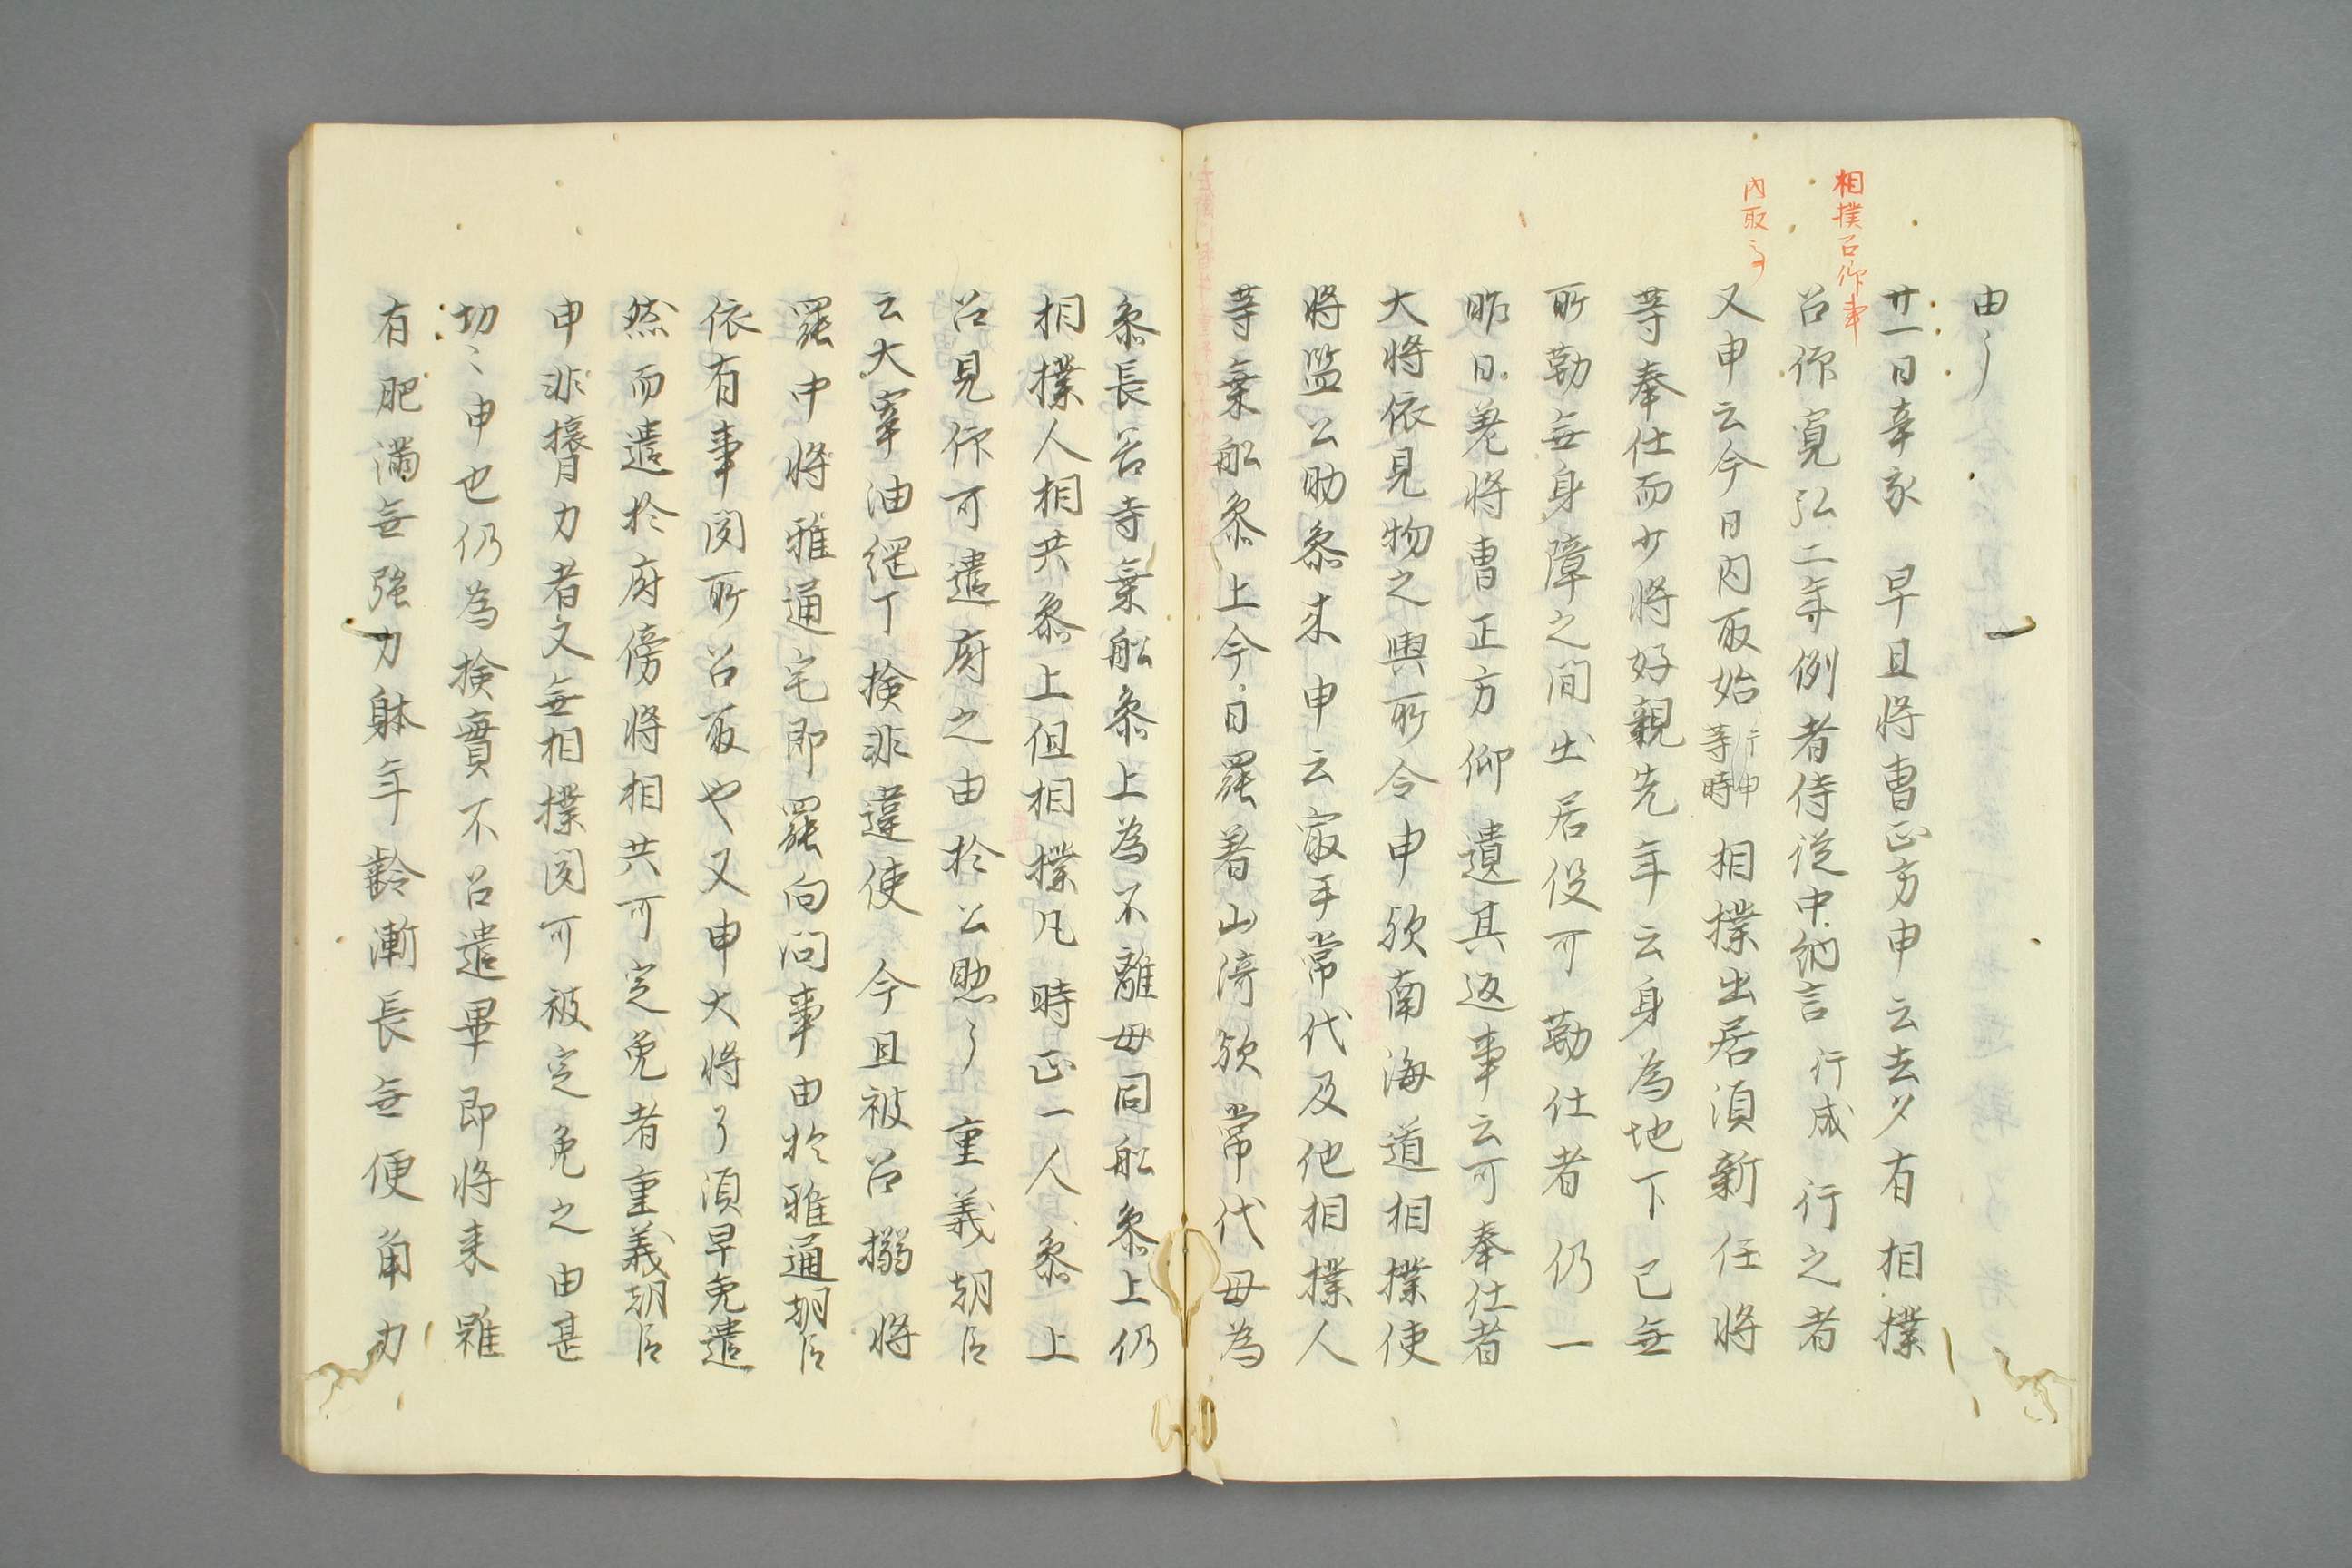 相撲召仰事
内取事
由了
廿一日辛亥 早旦将曹正方申云去夕有相撲
召仰寛弘二年例者侍従中納言行成行之者
又申云今日内取始行申時等相撲出居須新任将
等奉仕而少将好親先年云身為地下已無
所勤無身障之間出居役可勤仕者仍一
昨日差将曹正方仰遺其返事云可奉仕者
大将依見物之輿所令申歟南海道相撲使
将監公助参来申云最手常代及他相撲人
等乗舩参上今日罷着山濤歟常代母為
参長谷寺乗舩参上為不離母同舩参上仍
相撲人相共参上但相撲凡時正一人参上
召見仰可遣府之由於公助了重義朝臣
云大宰油綱丁検非違使今且被召搦将
罷中将雅通宅即罷向問事由於雅通朝臣
依有事闘所召取也又申大将了須早免遣
然而遣於府傍将相共可定免者重義朝臣
申非擾力者又無相撲闘可被定免之由甚
切々申也仍為検實不召遣畢即将来雖
有肥満無強力躰年齢漸長無便角力